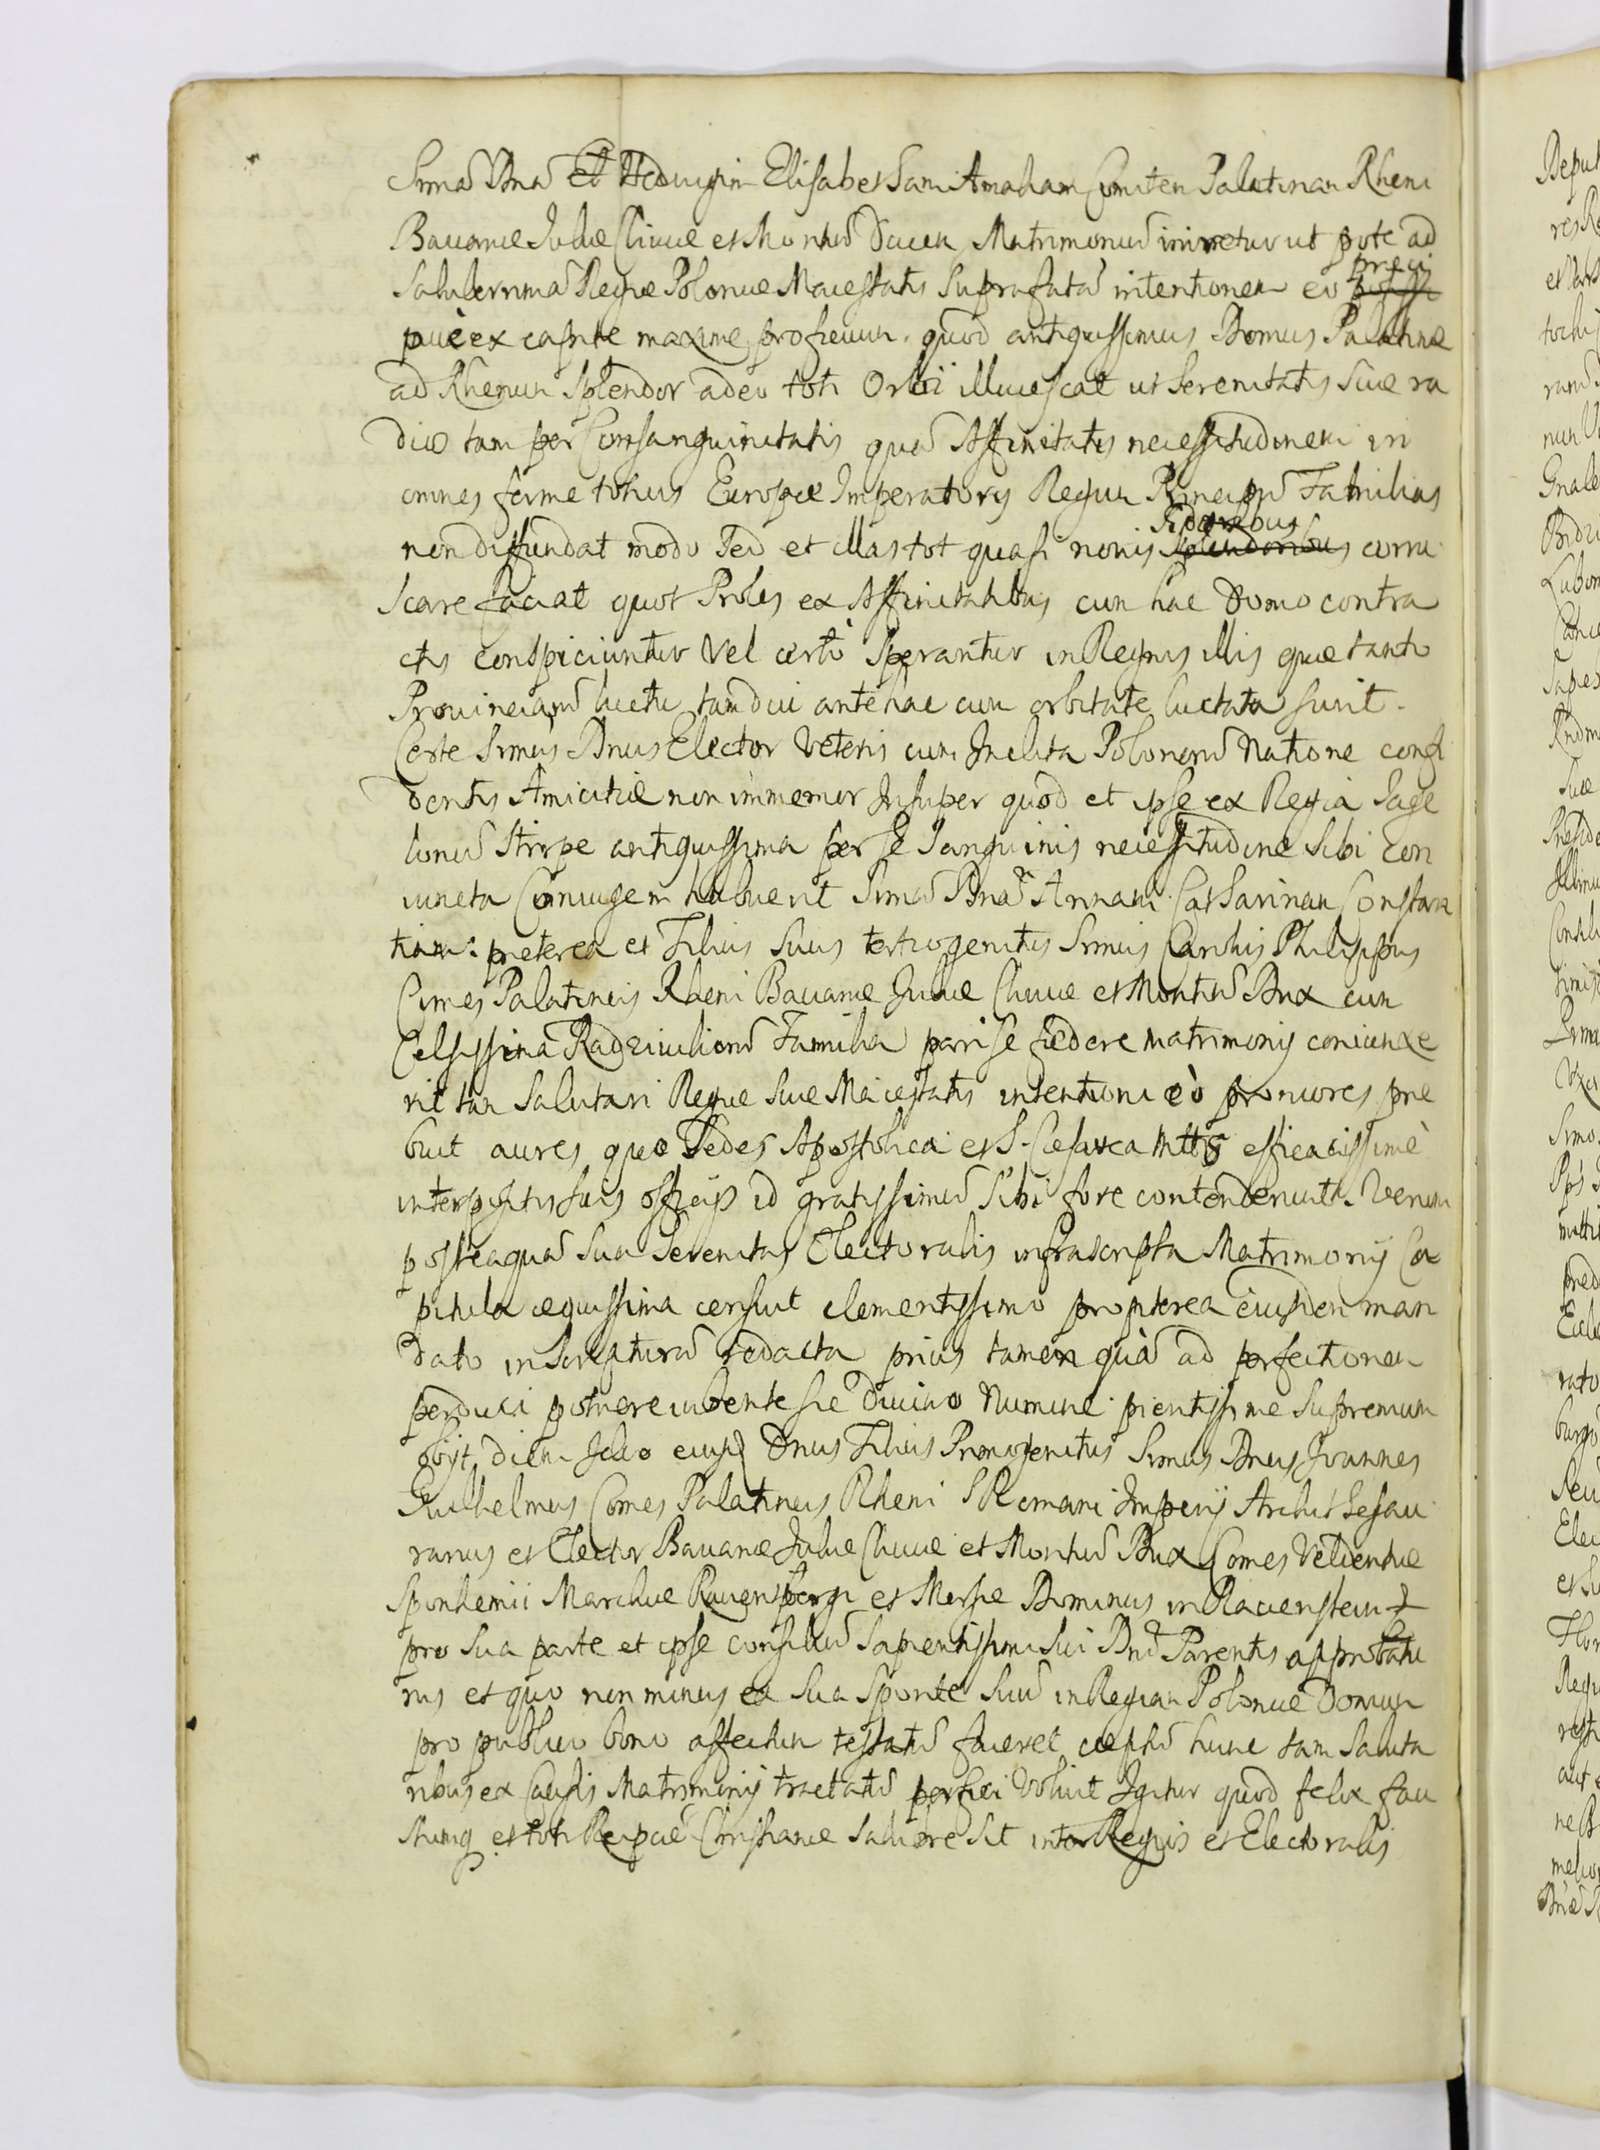 Srma Dna et Heduigim Elisabetham Amaliam Comitem Palatinam Rheni
Bauariæ Juliæ Cliuiæ et Montiu Ducem Matrimoniu iniretur ut pote ad
Saluberrima Regiæ Polonie Maiestatis Suprafata intentionem eo preci
puè ex capite maxime proficuum. quod antiquissimus Domus Palatinæ
ad Rhenum Splendor adeo toti Orbi illucescat ut Serenitatis Suæ ra
dios tam per Consanguinitatis qua Affinitatis necessitudinem in
omnes ferme totius Europæ Imperatoris Regum Principu Familias
non diffundat modo Sed et illas tot quasi nouis Splendoribus Sideribus corru
scare faciat quot Proles ex Affinitatibus cum hac Domo contra
ctis conspiciuntur Vel certò Sperantur in Regnis illis quæ tanto
Prouinciaru luctu tamdiu antehac cum orbitate luctata sunt.
Certe Srmus Dnus Elector Veteris cum Incluta Polonoru Natione confi
dentis Amicitiæ non immemor Insuper quod et ipse ex Regia Jage
loniu Stirpe antiquissima per se Sanguinis necessitudine Sibi Con
iuncta Coniugem habuerit Srma Dna Annam Catharinam Constan
tiam: preterea et Filius Suus tertiogenitus Srmus Carolus Philippus
Comes Palatinus Rheni Bauariæ Juliæ Cliuiæ et Montiu Dux cum
Celsissima Radziuilioru Familia pari se fœdere matrimonij coniunxe
rit tam Salutari Regiæ Suæ Maiestatis intentioni eò proniores præ
buit aures quo Sedes Apostolica et S. Cesarea Mttas efficacissimè
interpositis suis officijs id gratissimu Sibi fore contenderunt. Verum
posteaqua Sua Serenitas Electoralis infrascripta Matrimonij Ca
pitula æquissima censuit clementissimo propterea eiusdem man
dato in Scriptura redacta prius tamen qua ad perfectionem
perduci potuere iubente sic Diuino Numine pientissime Supremum
obijt diem Ideo eius Dnus Filius Primogenitus Srmus Dnus Joannes
Guilhelmus Comes Palatinus Rheni S R omani Imperij Archithesau
rarius et Elector Bauariæ Juliæ Cliuiæ et Montiu Dux Comes Veldentiæ
Sponhemii Marchiæ Rauenspergi et Mersiæ Dominus in Rauenstein
pro Sua parte et ipse consiliu Sapientissimi Sui Dni Parentis approbatu
rus et quo non minus ea Sua Sponte Suu in Regiam Poloniæ Domum
pro publico bono affectum testatu faceret cæptu hunc tam Saluta
ribus ex Causis Matrimonij tractatu perfici Voluit Igitur quod felix fau
stumq et toti Reipcæ Christianæ Salutare Sit inter Regiis et Electoralis